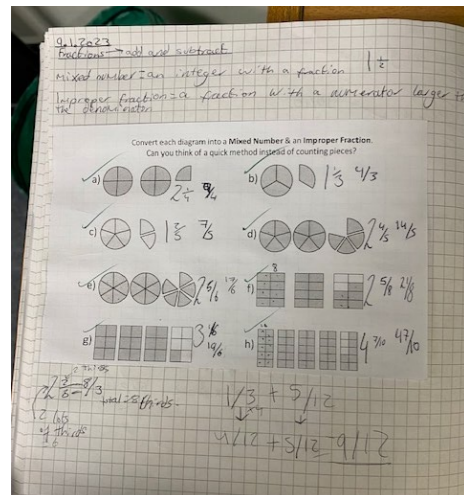 9.1.2023
Fractions → add and subtract
Mixed number = an integer with a fraction 1 1/2
Improper fraction = a fraction with a numerator larger
the denominator
Convert each diagram into a Mixed Number & an Improper Fraction.
Can you think of a quick method instead of counting pieces?
a) 2 1/4 9/4
b) 1 1/3 4/3
c) 1 2/5 7/5
d) 2 4/5 14/5
e) 2 5/6 17/6
f) 8 2 5/8 21/8
g) 3 19/6
h) 10 4 7/10 47/10
2 2/3 = 8/3
total = 8 thirds
2 lots
of thirds
1/3 + 5/12
4/12 + 5/12 = 9/12